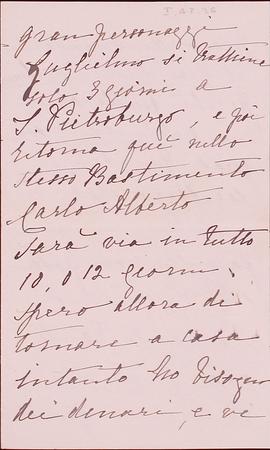 gran personaggi
Guglielmo si trattiene
solo 3 giorni a
S. Pietroburgo, e poi
ritorna quì nello
stesso Bastimento
Carlo Alberto
Sarà via in tutto
10, o 12 giorni.
spero allora di
tornare a casa
intanto ho bisogno
dei denari, e ve